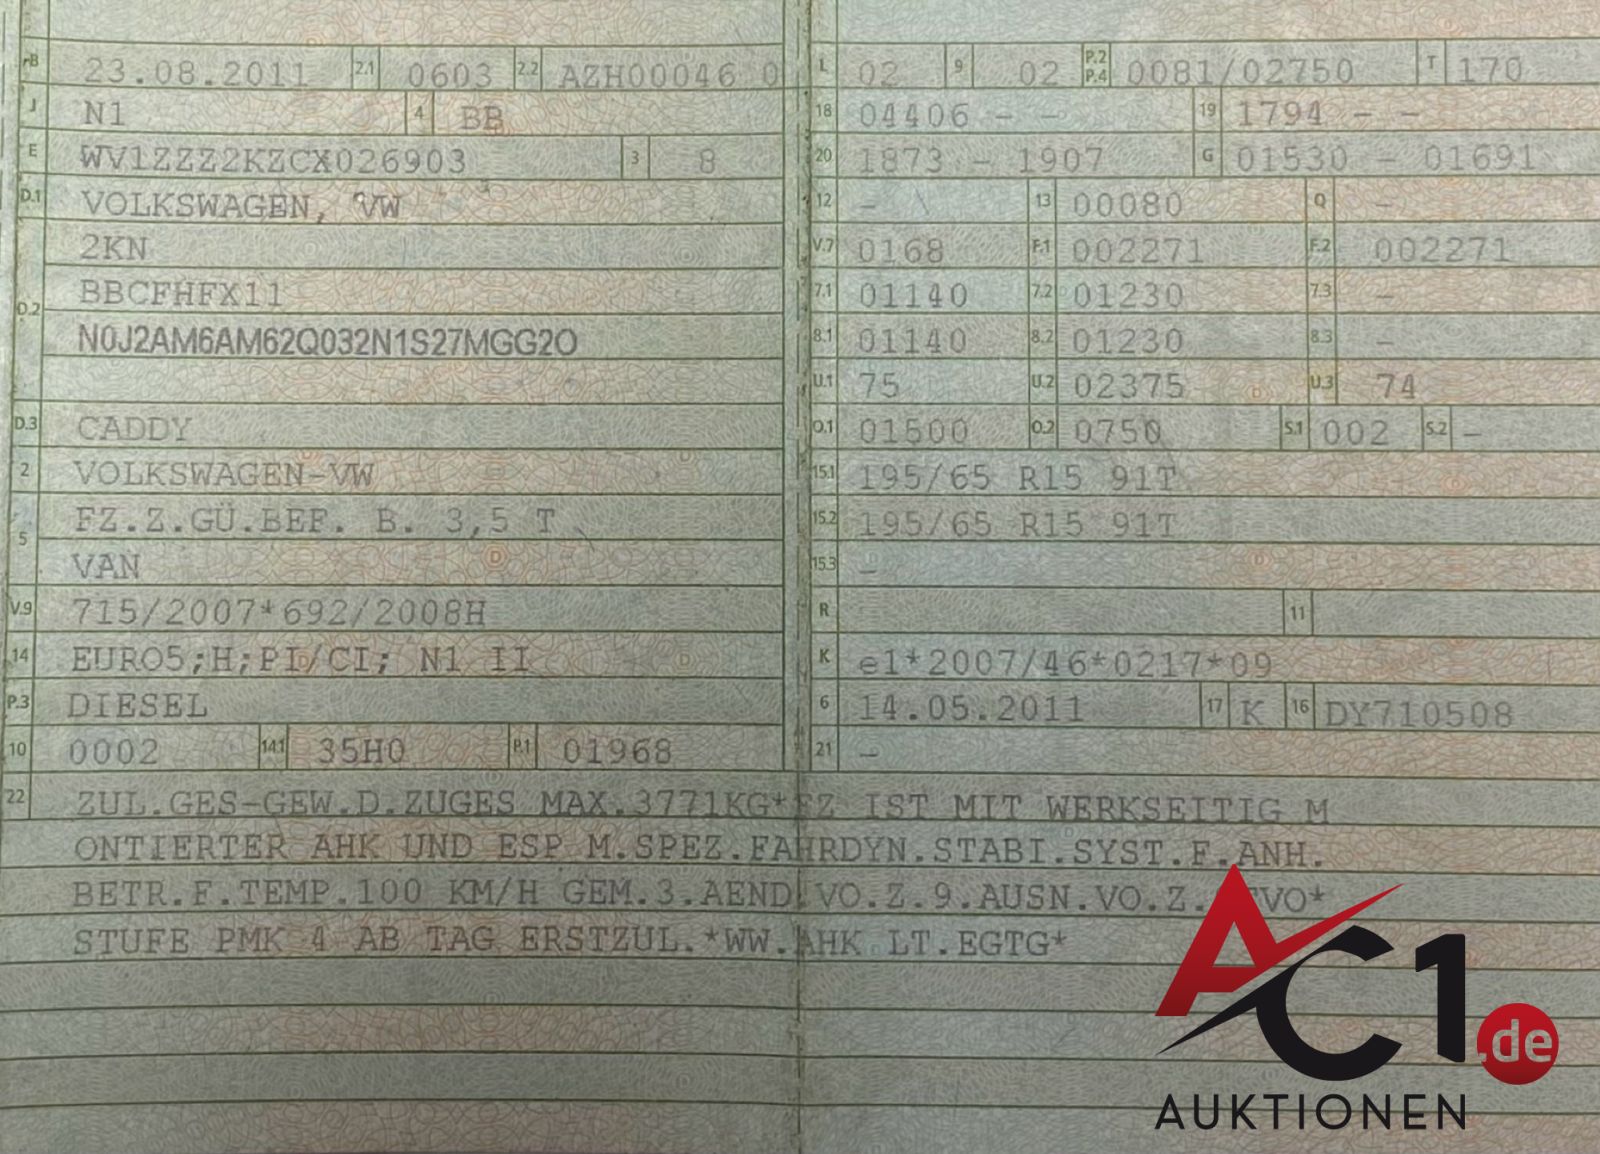 B 23.08.2011 2.1 0603 2.2 AZH00046 0
J N1 4 BB
E WV1ZZZ2KZCX026903 3 8
D.1 VOLKSWAGEN, VW
2KN
D.2 BBCFHFX11
N0J2AM6AM62Q032N1S27MGG2O
D.3 CADDY
2 VOLKSWAGEN-VW
5 FZ.Z.GÜ.BEF. B. 3,5 T
VAN
V.9 715/2007*692/2008H
14 EURO5;H;PI/CI; N1 II
P.3 DIESEL
10 0002 14.1 35H0 P.1 01968
L 02 9 02 P.2 P.4 0081/02750 T 170
18 04406 - - 19 1794 - -
20 1873 - 1907 G 01530 - 01691
12 - 13 00080 Q -
V.7 0168 F.1 002271 F.2 002271
7.1 01140 7.2 01230 7.3 -
8.1 01140 8.2 01230 8.3 -
U.1 75 U.2 02375 U.3 74
O.1 01500 O.2 0750 S.1 002 S.2 -
15.1 195/65 R15 91T
15.2 195/65 R15 91T
15.3 -
R 11
K e1*2007/46*0217*09
6 14.05.2011 17 K 16 DY710508
21 -
22 ZUL.GES-GEW.D.ZUGES MAX.3771KG*FZ IST MIT WERKSEITIG M
ONTIERTER AHK UND ESP M.SPEZ.FAHRDYN.STABI.SYST.F.ANH.
BETR.F.TEMP.100 KM/H GEM.3.AEND.VO.Z.9.AUSN.VO.Z. VO*
STUFE PMK 4 AB TAG ERSTZUL.*WW.AHK LT.EGTG*
AC1.de
AUKTIONEN